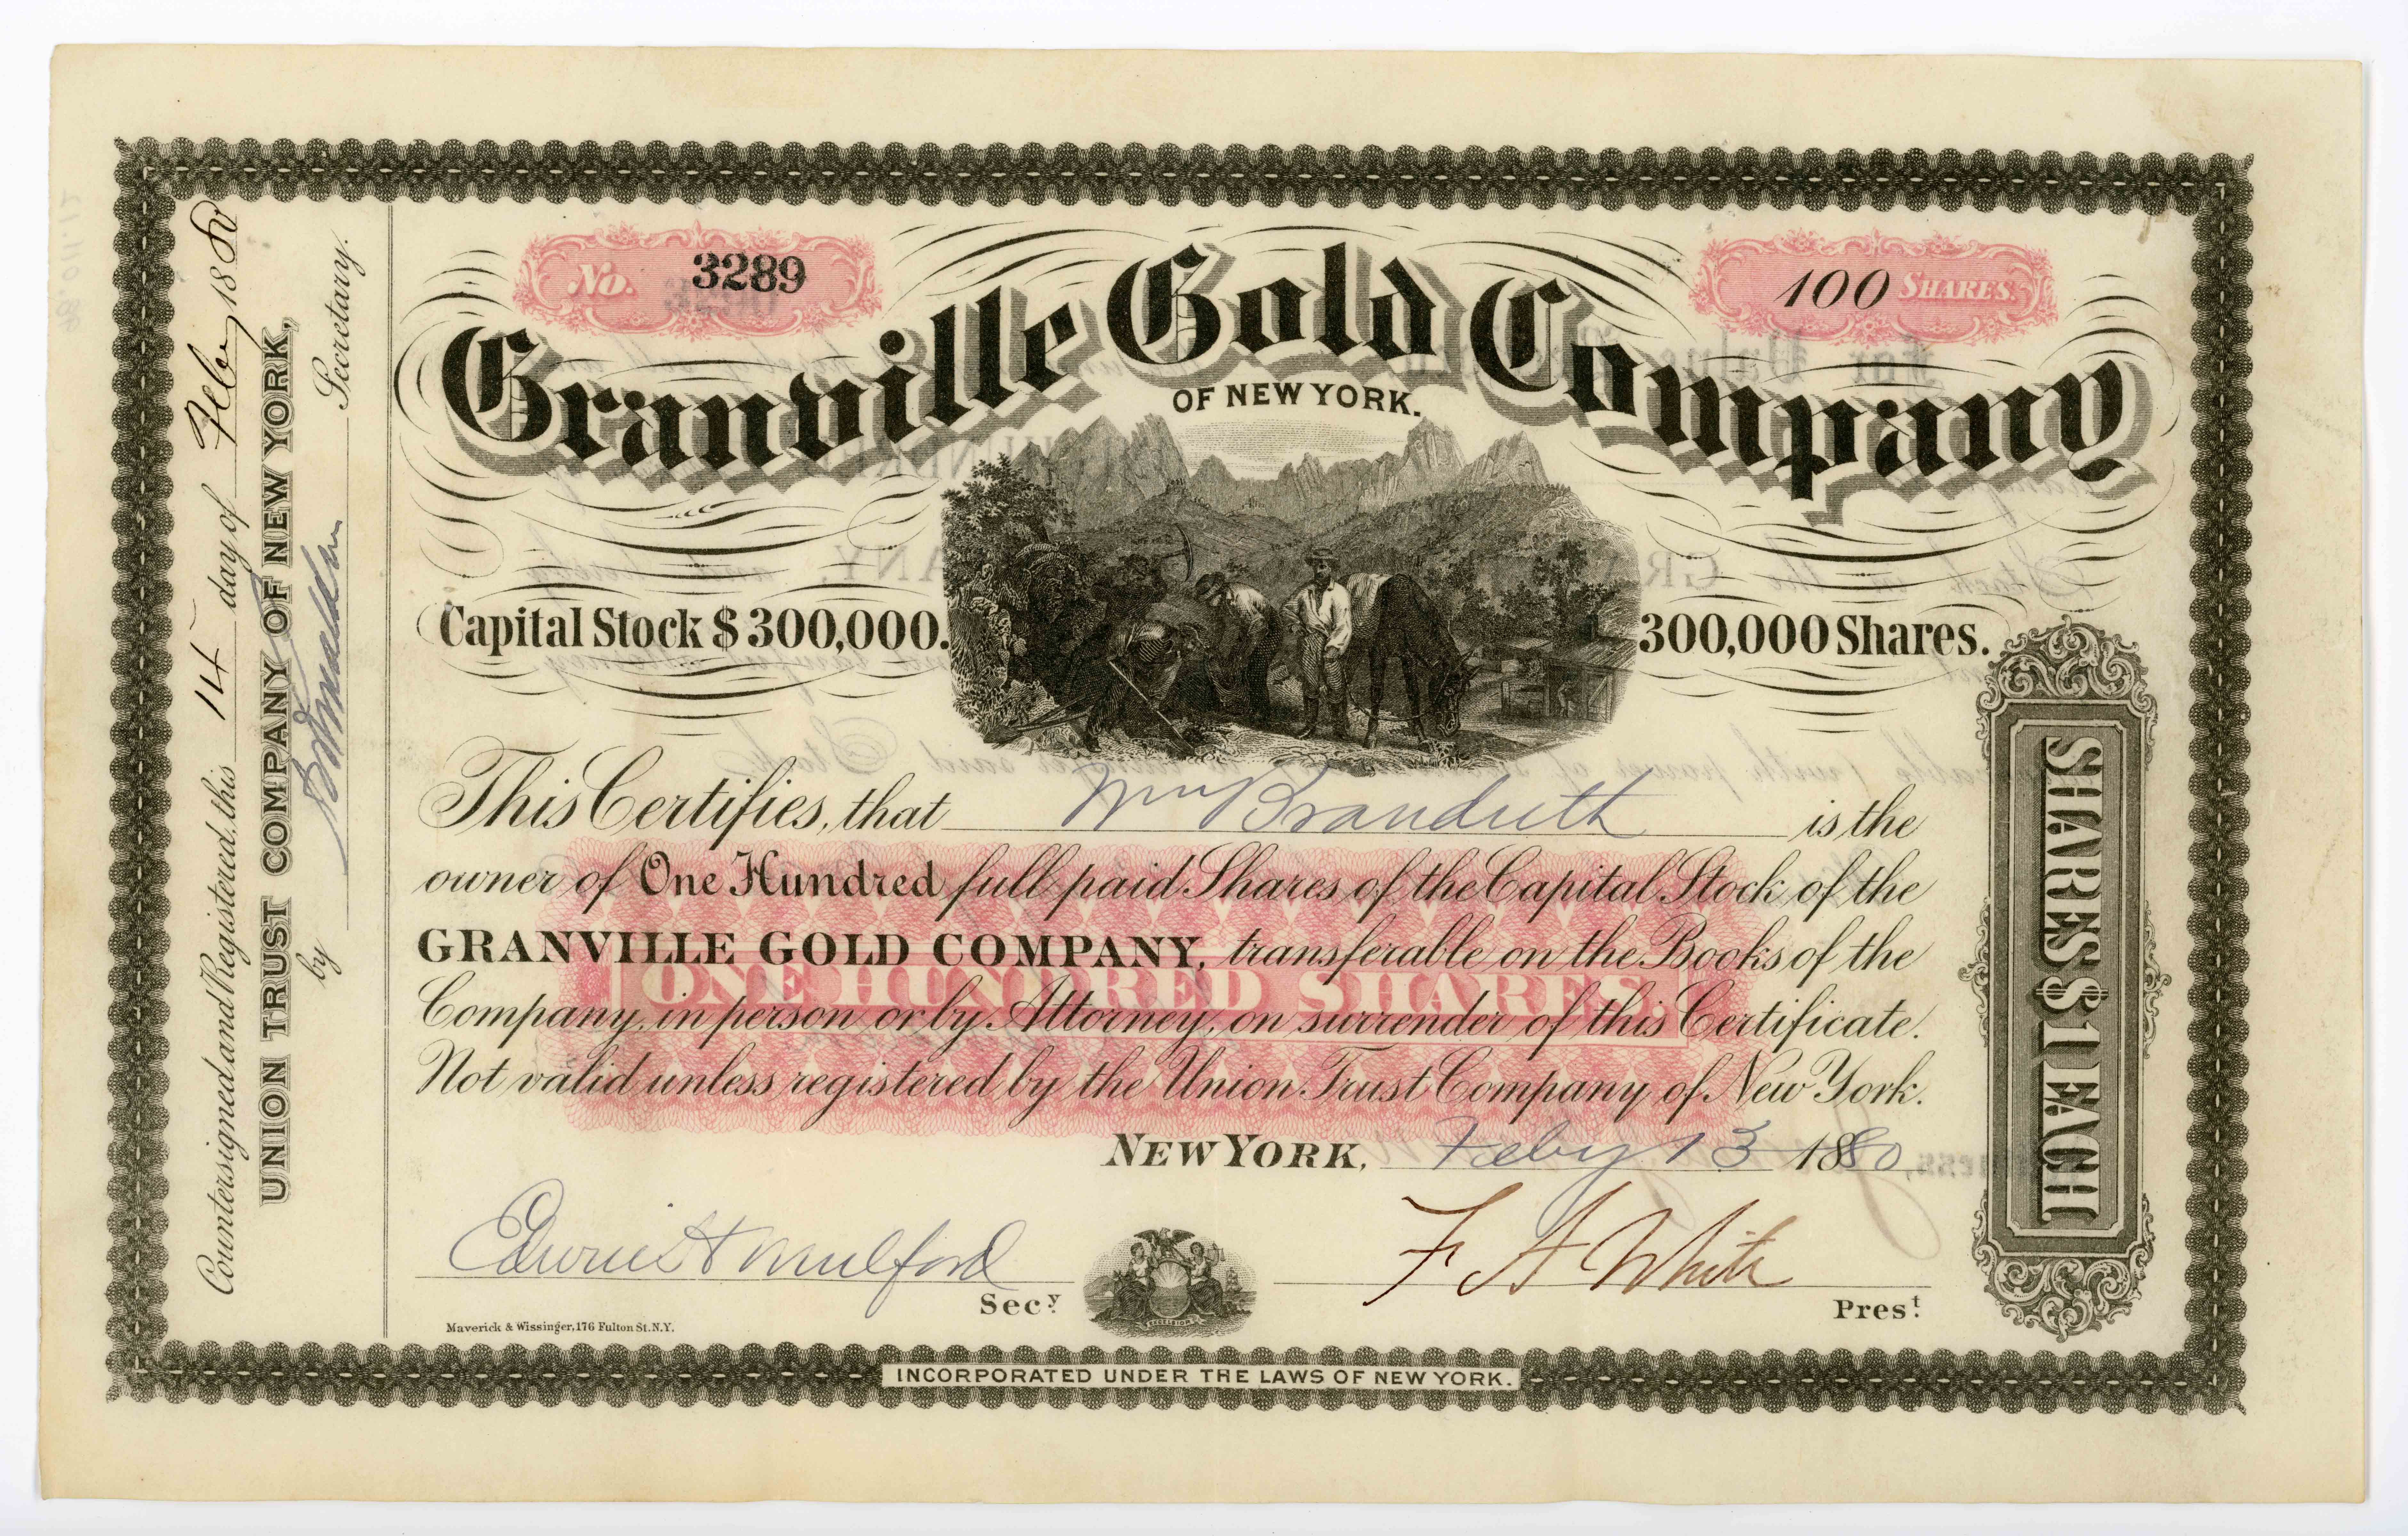 No. 3289
100 SHARES.
Granville Gold Company
OF NEW YORK.
Capital Stock $300,000.
300,000 Shares.
This Certifies, that Wm Brandreth is the
owner of One Hundred full paid Shares of the Capital Stock of the
GRANVILLE GOLD COMPANY, transferable on the Books of the
Company, in person or by Attorney, on surrender of this Certificate.
ONE HUNDRED SHARES.
Not valid unless registered by the Union Trust Company of New York.
NEW YORK, Feby 13 1880
Edwin H Mulford
Secy.
F A White
Prest.
Maverick & Wissinger, 176 Fulton St. N.Y.
EXCELSIOR
INCORPORATED UNDER THE LAWS OF NEW YORK.
SHARES $1 EACH
Countersigned and Registered, this 14 day of Feby 1880
UNION TRUST COMPANY OF NEW YORK,
by Secretary.